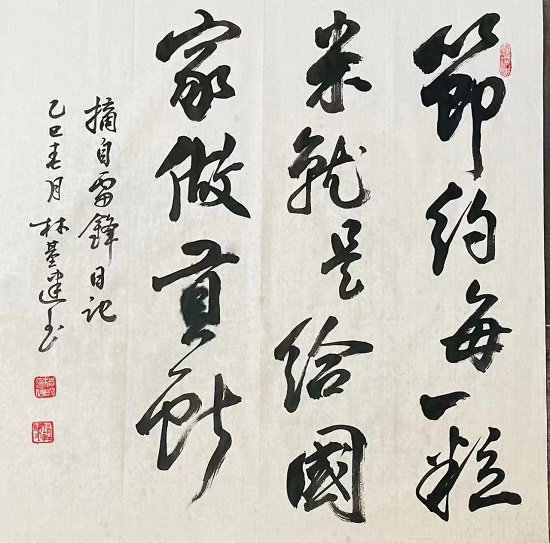 節约每一粒
米就是给國
家做貢献
摘自雷鋒日记
乙巳春月林基建书